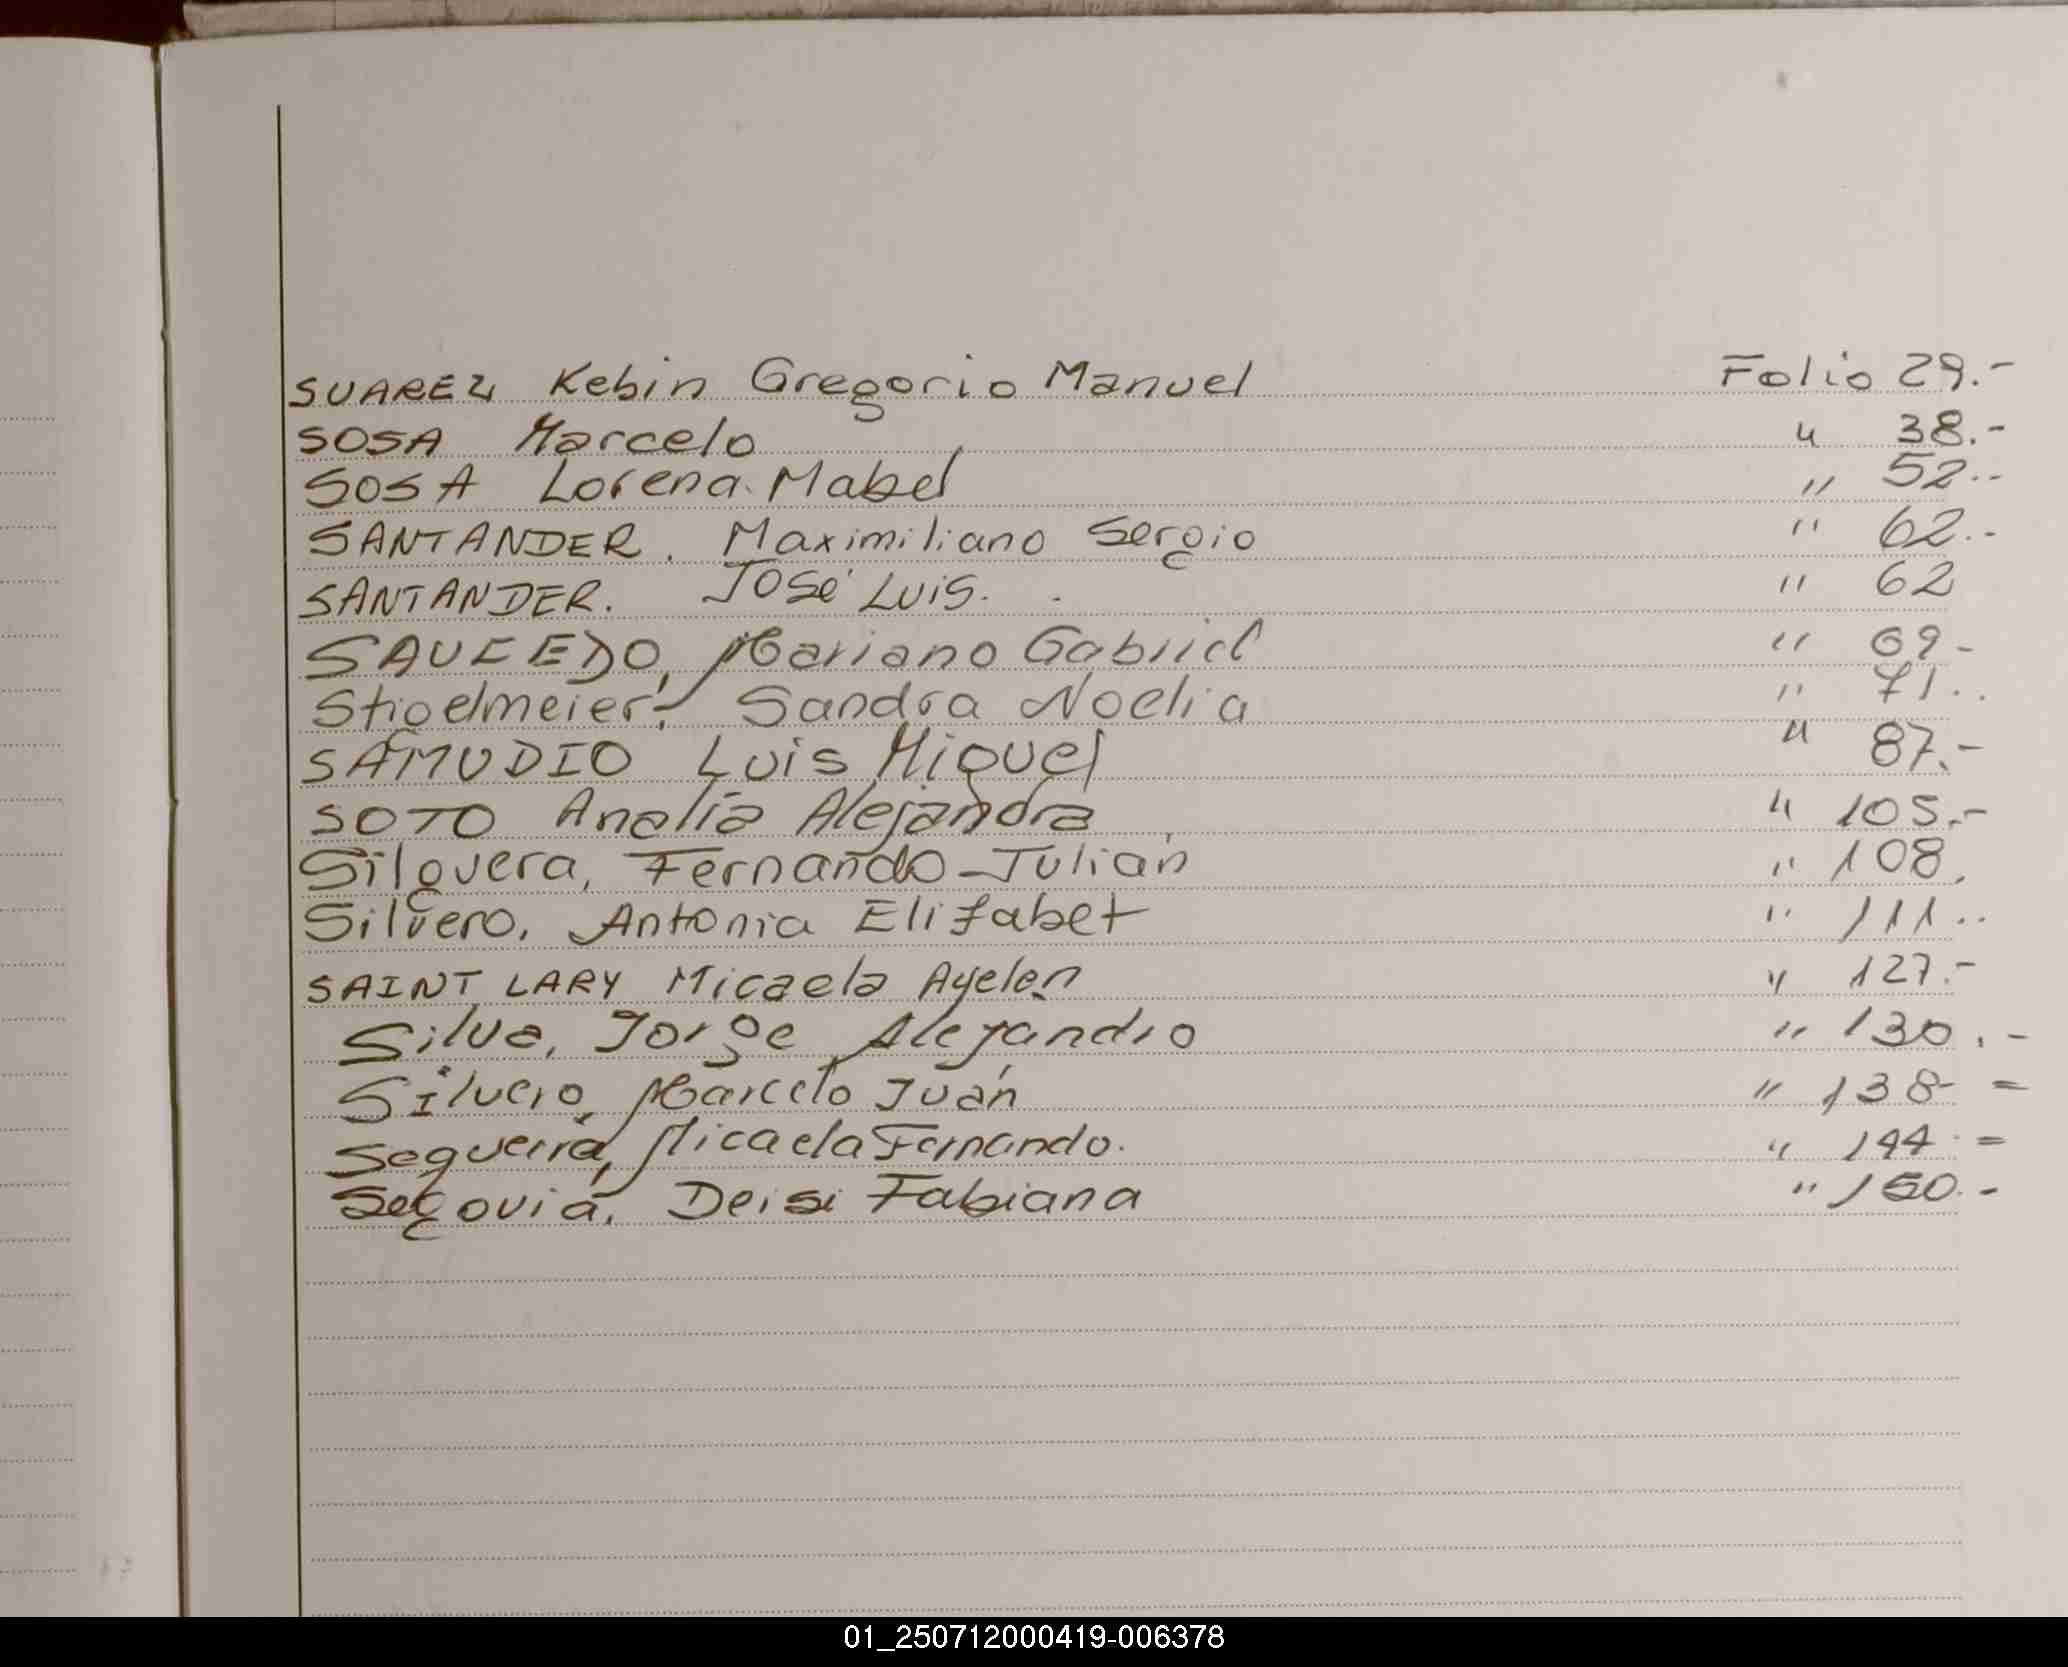 SUAREZ Kebin Gregorio Manuel Folio 29.-
SOSA Marcelo " 38.-
SOSA Lorena Mabel " 52.-
SANTANDER. Maximiliano Sergio " 62.-
SANTANDER. José Luis. " 62
SAUCEDO, Mariano Gabriel " 69-
Stigelmeier. Sandra Noelia " 71..
SAMUDIO Luis Miguel " 87.-
SOTO Analía Alejandra " 105.-
Silguera, Fernando Julian " 108.
Silvero, Antonia Elizabet " 111..
SAINT LARY Micaela Ayelen " 127.-
Silva, Jorge Alejandro " 130.-
Silvero, Marcelo Juan " 138 =
Segueira, Micaela Fernando. " 144 =
Segovia, Deisi Fabiana " 150.-
01_250712000419-006378